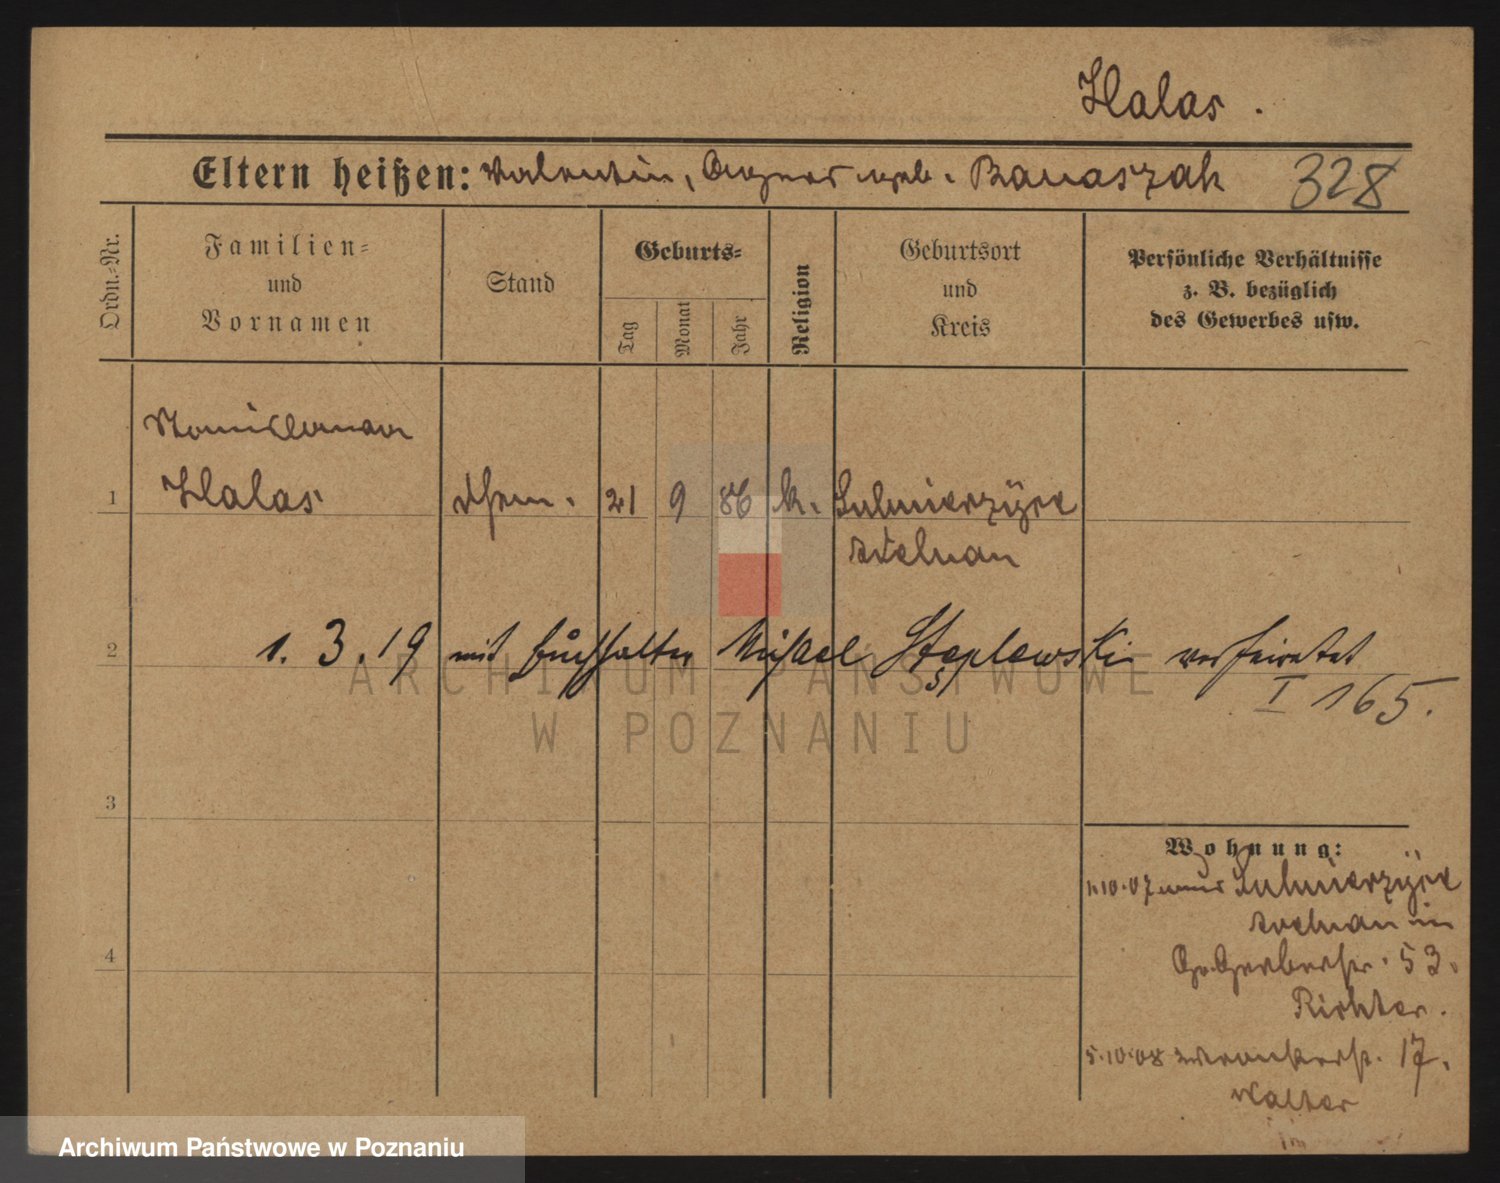 Halas.
Eltern heißen: Valentin, Agnes geb. Banaszak 328
Ordn.=Nr.
Familien=
und
Vornamen
Stand
Geburts=
Tag
Monat
Jahr
Religion
Geburtsort
und
Kreis
Persönliche Verhältnisse
z. B. bezüglich
des Gewerbes usw.
Stanislawa
1 Halas 21 9 86 k. Sulmierzyce
Adelnau
2 1. 3. 19 mit Buchhalter Michael Stęplewski verheiratet
I 165.
ARCHIWUM PAŃSTWOWE
W POZNANIU
3
Wohnung:
1.10.07 aus Sulmierzyce
Adelnau in
Gr. Gerberstr. 53.
Richter.
4
5.10.08 17.
Walter
Archiwum Państwowe w Poznaniu